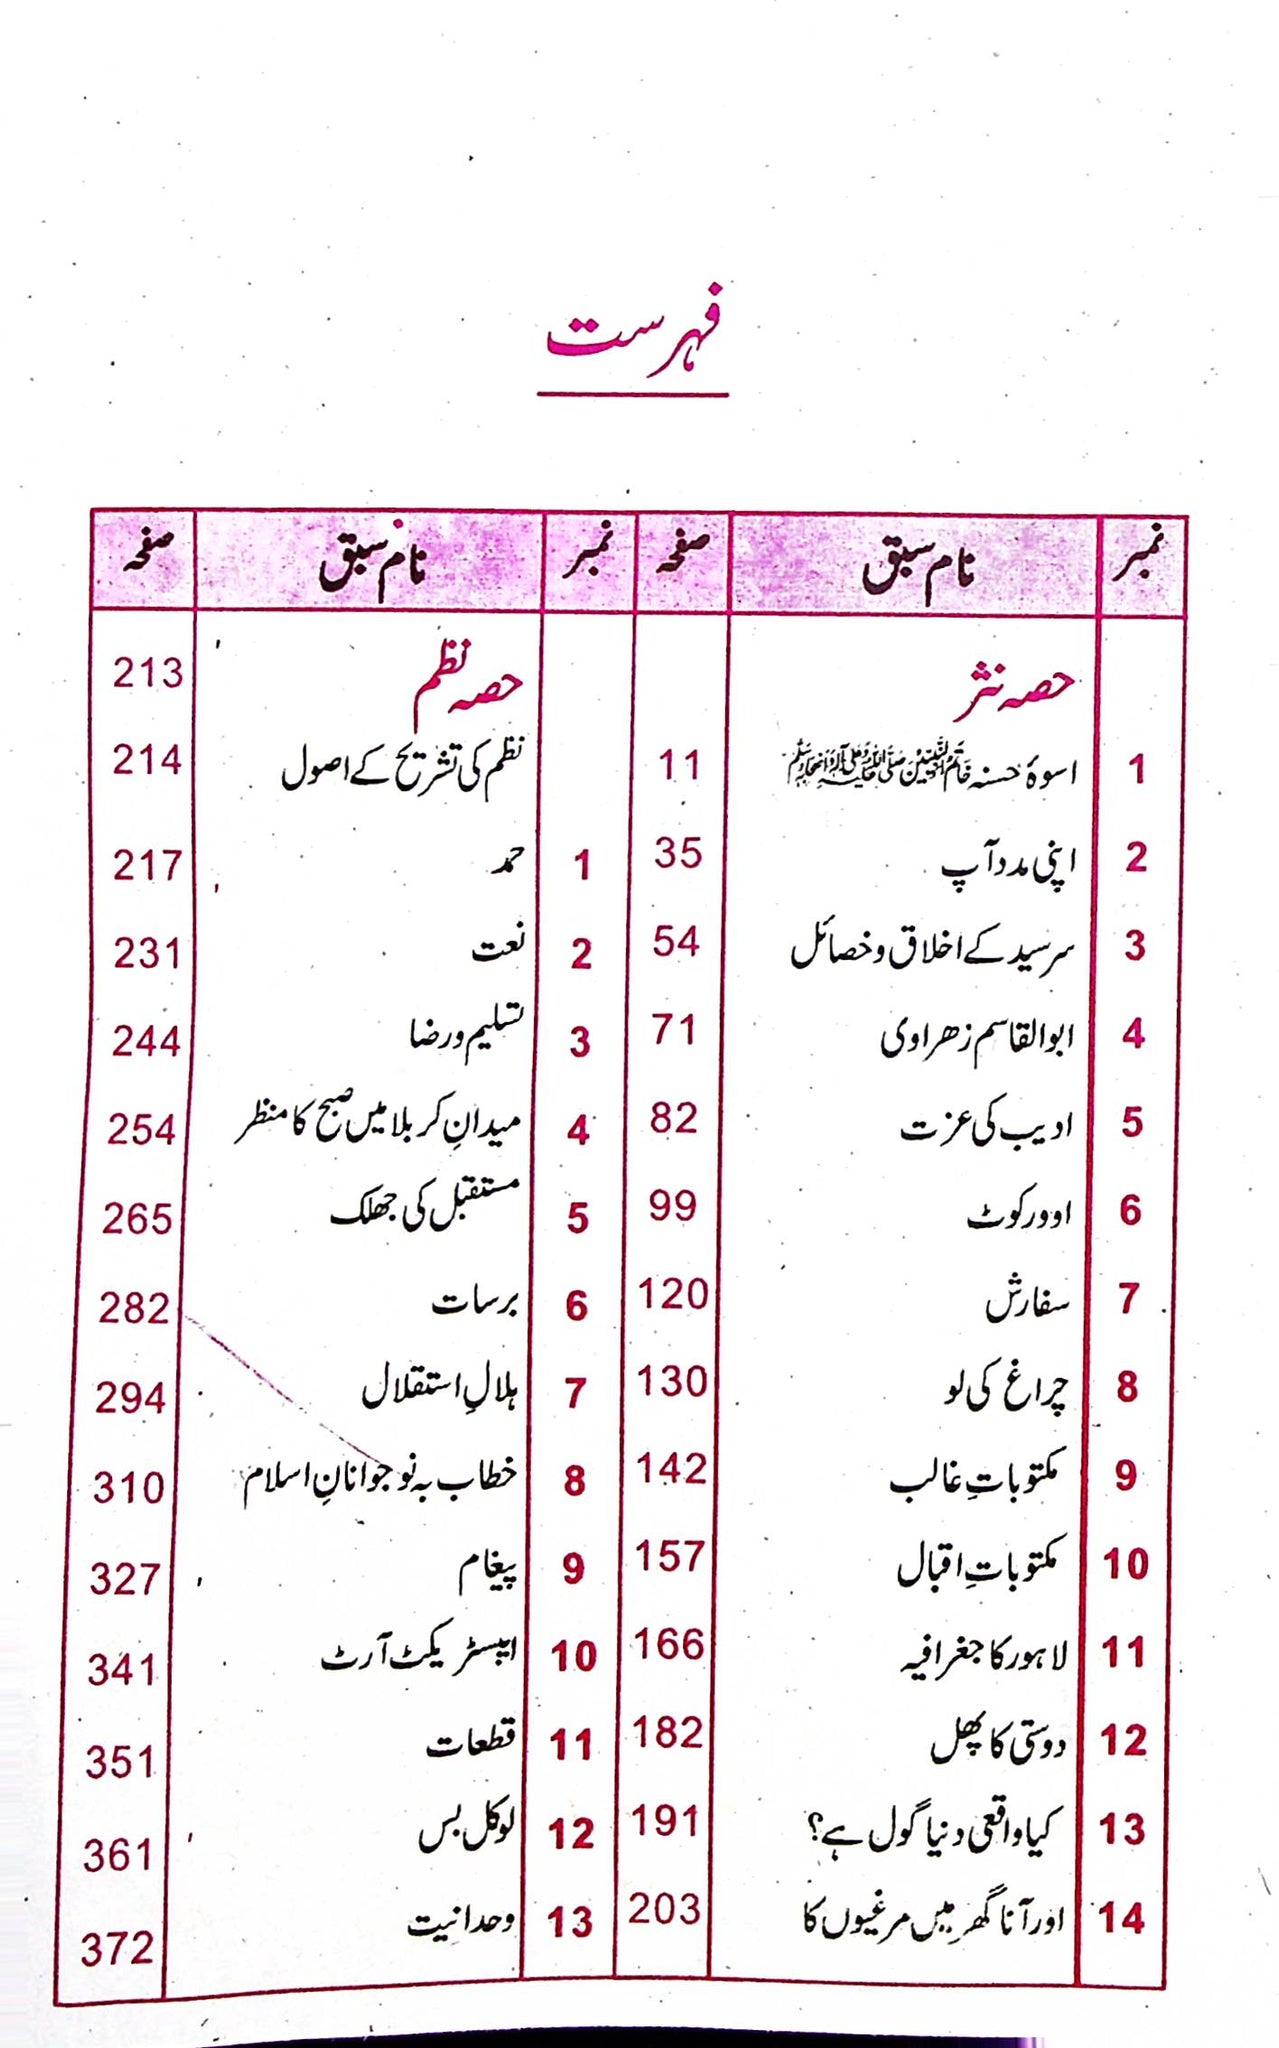 فہرست
نمبر نام سبق صفحہ نمبر نام سبق صفحہ
حصہ نثر حصہ نظم 213
1 اسوۂ حسنہ خاتم النبیین صلی اللہ علیہ وعلیٰ آلہ واصحابہ وسلم 11 نظم کی تشریح کے اصول 214
2 اپنی مدد آپ 35 1 حمد 217
3 سرسید کے اخلاق و خصائل 54 2 نعت 231
4 ابوالقاسم زھراوی 71 3 تسلیم و رضا 244
5 ادیب کی عزت 82 4 میدانِ کربلا میں صبح کا منظر 254
6 اوورکوٹ 99 5 مستقبل کی جھلک 265
7 سفارش 120 6 برسات 282
8 چراغ کی لو 130 7 ہلالِ استقلال 294
9 مکتوباتِ غالب 142 8 خطاب بہ نوجوانانِ اسلام 310
10 مکتوباتِ اقبال 157 9 پیغام 327
11 لاہور کا جغرافیہ 166 10 ایبسٹریکٹ آرٹ 341
12 دوستی کا پھل 182 11 قطعات 351
13 کیا واقعی دنیا گول ہے؟ 191 12 لوکل بس 361
14 اور آنا گھر میں مرغیوں کا 203 13 وحدانیت 372